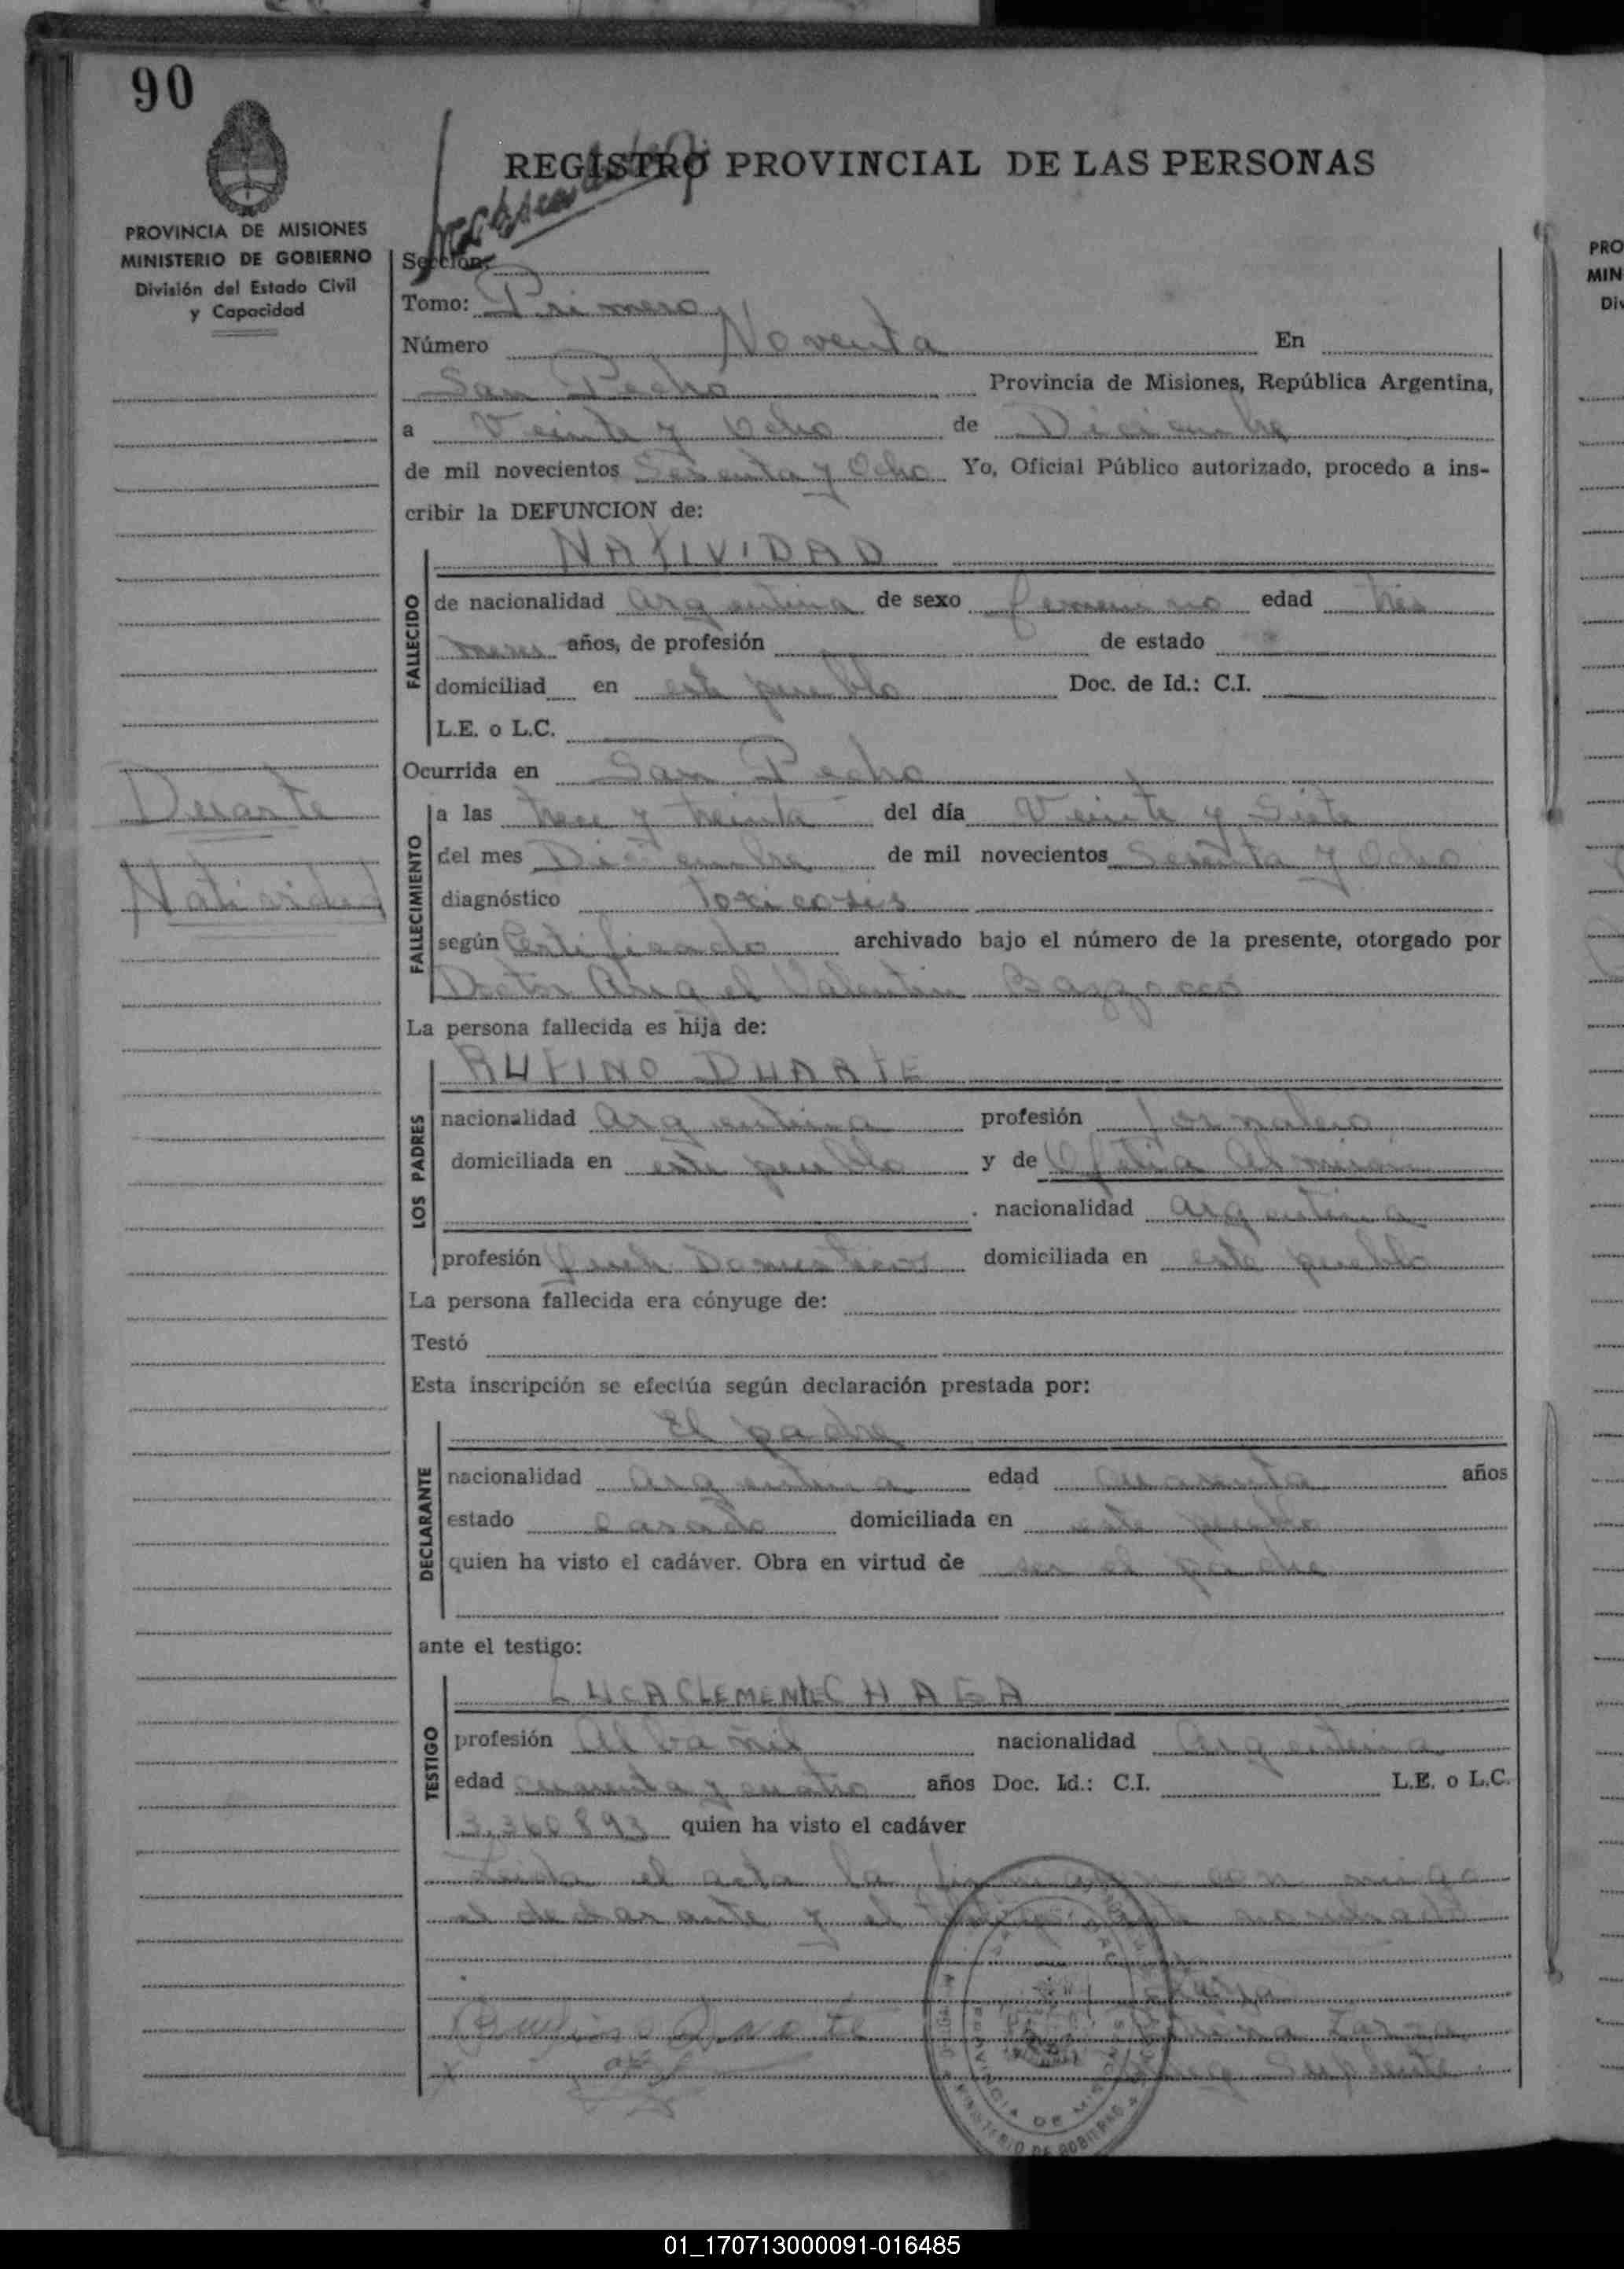 90
REGISTRO PROVINCIAL DE LAS PERSONAS
PROVINCIA DE MISIONES
MINISTERIO DE GOBIERNO
División del Estado Civil
y Capacidad
Sección:
Tomo: Primero
Número Noventa En
San Pedro Provincia de Misiones, República Argentina,
a Veinte y Ocho de Diciembre
de mil novecientos Sesenta y Ocho Yo, Oficial Público autorizado, procedo a ins-
cribir la DEFUNCION de:
NATIVIDAD
FALLECIDO
de nacionalidad Argentina de sexo femenino edad tres
meses años, de profesión de estado
domiciliad en este pueblo Doc. de Id.: C.I.
L.E. o L.C.
Ocurrida en San Pedro
Duarte
Natividad
FALLECIMIENTO
a las trece y treinta del día Veinte y Siete
del mes Diciembre de mil novecientos Sesenta y Ocho
diagnóstico toxicosis
según Certificado archivado bajo el número de la presente, otorgado por
Doctor Angel Valentin Bazzocco
La persona fallecida es hija de:
RUFINO DUARTE
LOS PADRES
nacionalidad Argentina profesión Jornalero
domiciliada en este pueblo y de
nacionalidad Argentina
profesión Domestico domiciliada en este pueblo
La persona fallecida era cónyuge de:
Testó
Esta inscripción se efectúa según declaración prestada por:
El padre
DECLARANTE
nacionalidad Argentina edad cuarenta años
estado Casado domiciliada en este pueblo
quien ha visto el cadáver. Obra en virtud de ser el padre
ante el testigo:
LUCA CLEMENTE CHAGA
TESTIGO
profesión Albañil nacionalidad Argentina
edad cuarenta y cuatro años Doc. Id.: C.I. L.E. o L.C.
3.360.893 quien ha visto el cadáver
Leida el acta la firmaron con migo
el declarante y el testigo nombrado
Rufino Duarte
Suplente
PROVINCIA DE MISIONES
MINISTERIO DE GOBIERNO
PRO
MIN
Div
01_170713000091-016485